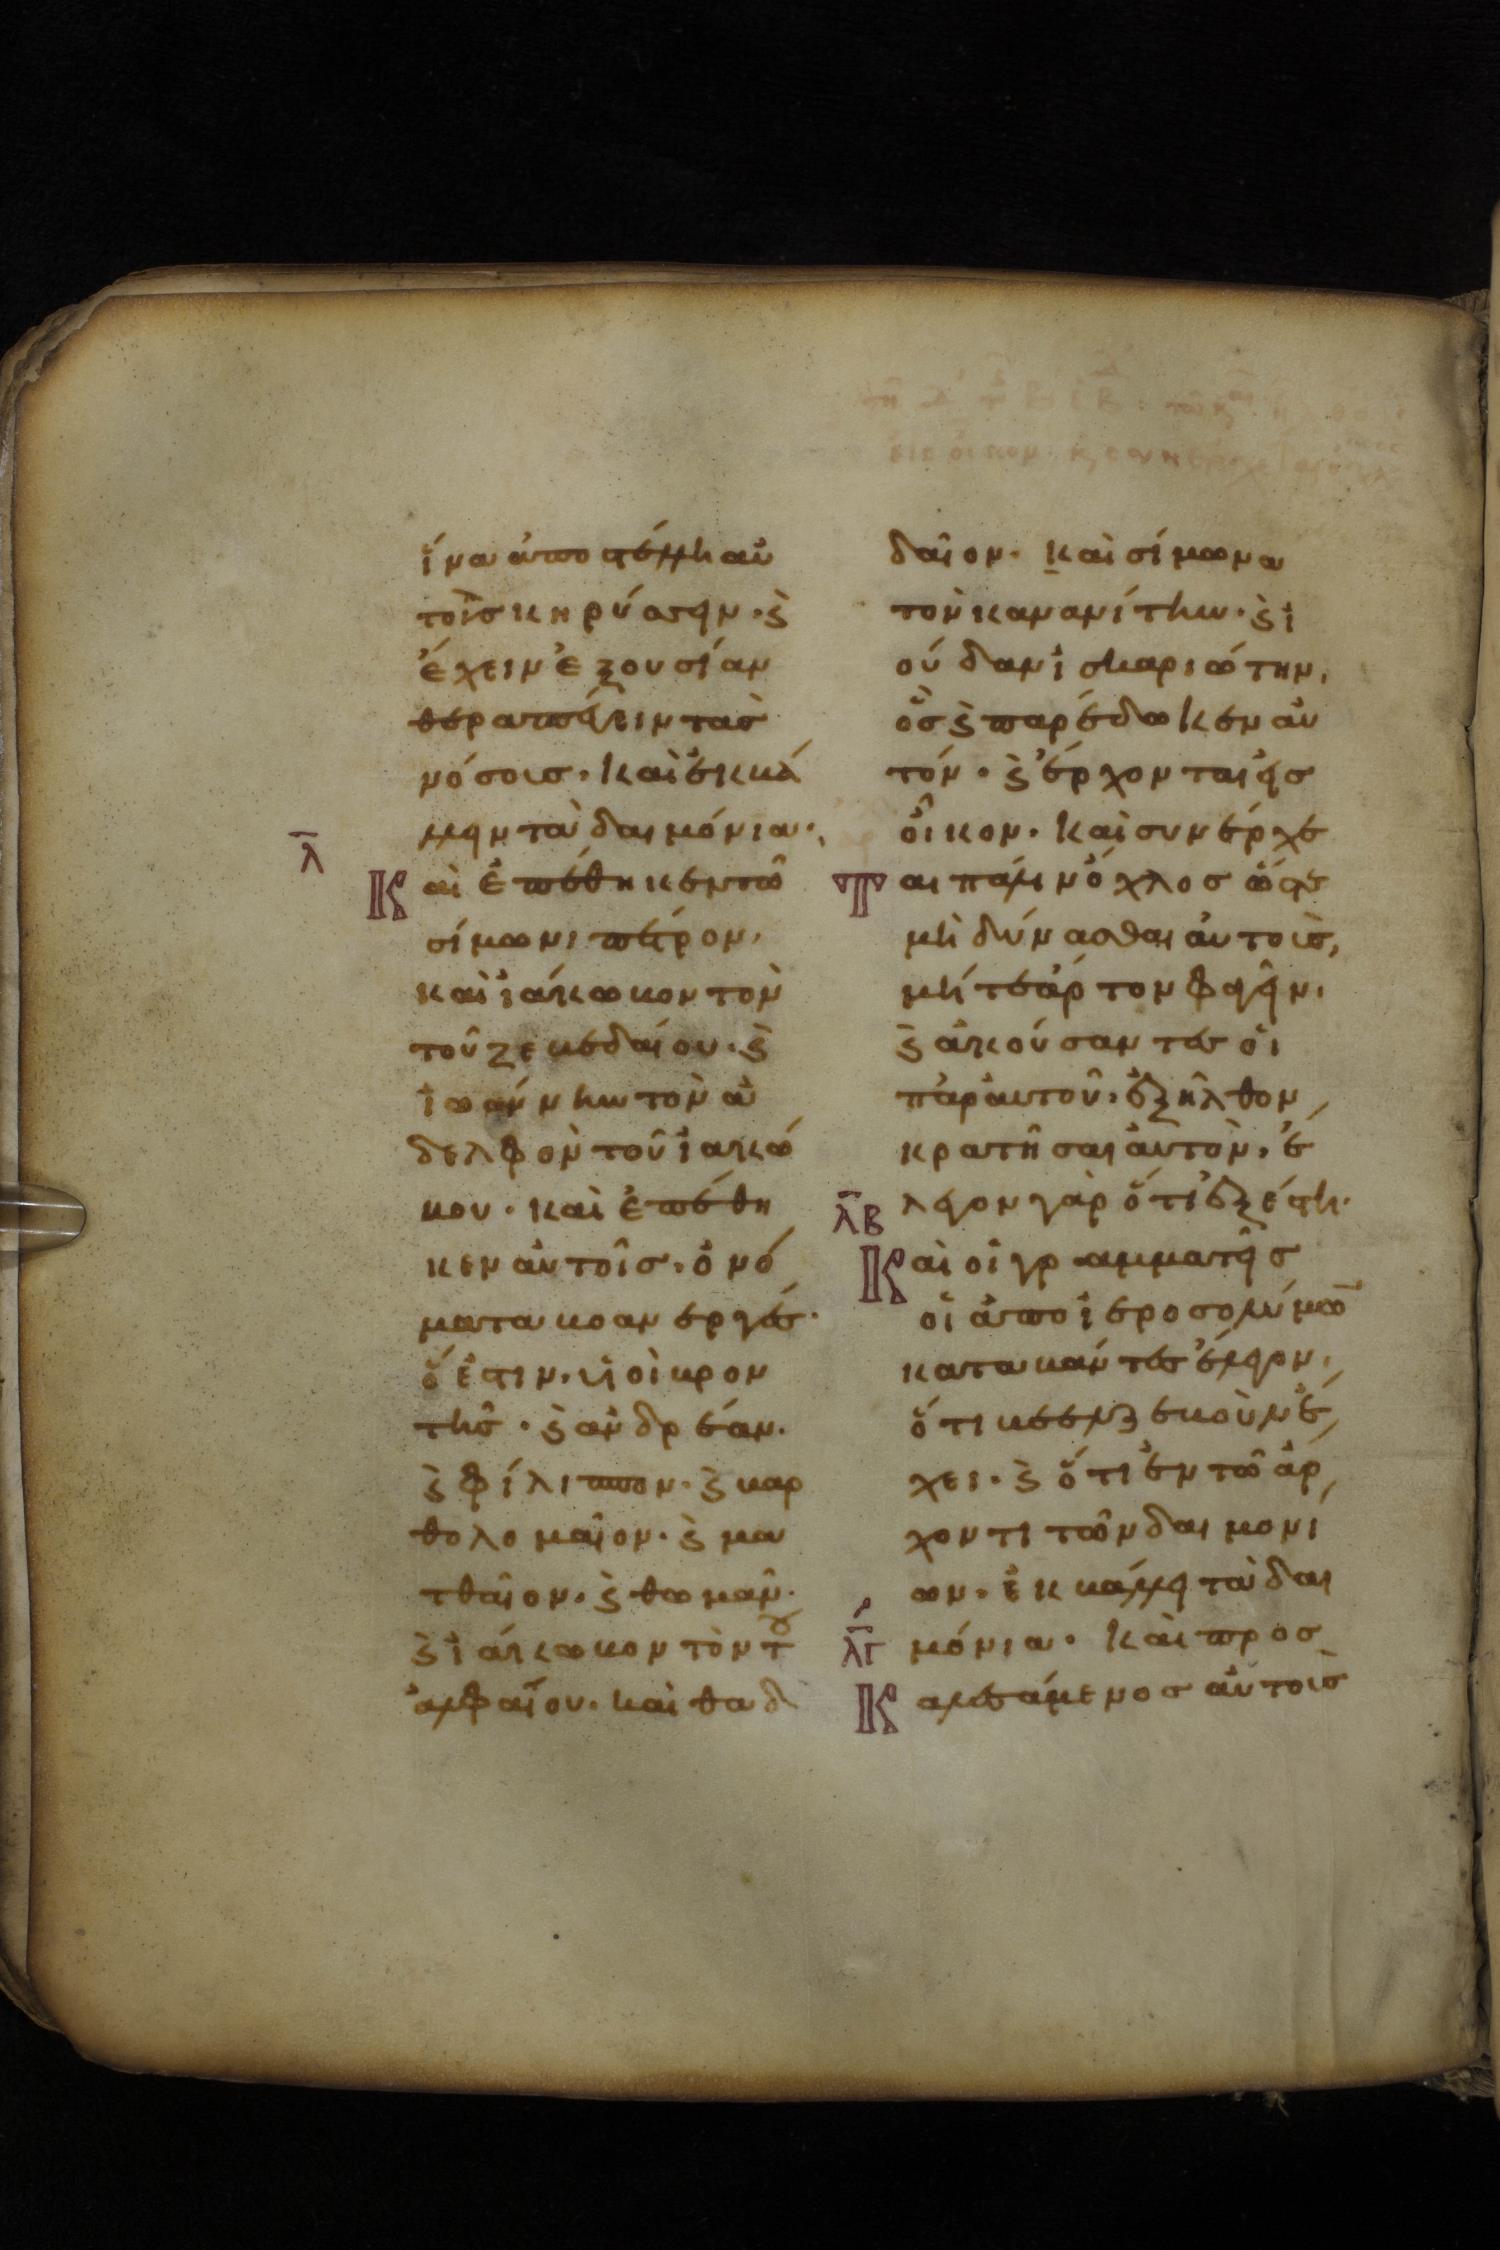 ἵνα ἀποστέλλη αὐ
τοὺς κηρύσσειν· ϗ
ἔχειν ἐξουσίαν
θεραπεύειν τὰς
νόσους· καὶ ἐκβά
λλειν τὰ δαιμόνια·
λ
Καὶ ἐπέθηκεν τῶ
σίμωνι πέτρον,
καὶ ἰάκωβον τὸν
τοῦ ζεβεδαίου· ϗ
ἰωάννην τὸν ἀ
δελφὸν τοῦ ἰακώ
βου· καὶ ἐπέθη
κεν αὐτοῖς, ὀνό
ματα βοανεργές·
ὅ ἐστιν, υἱοὶ βρον
τῆς· ϗ ἀνδρέαν·
ϗ φίλιππον· ϗ βαρ
θολομαῖον· ϗ μα
τθαῖον· ϗ θωμᾶν·
ϗ ἰάκωβον τὸν τοῦ
ἀλφαίου· καὶ θαδ
δαῖον· καὶ σίμωνα
τὸν κανανίτην· ϗ ἰ
ούδαν ἰσκαριώτην,
ὃς ϗ παρέδωκεν αὐ
τόν· ϗ ἔρχονται εἰς
οἶκον· καὶ συνέρχε
ται πάλιν ὄχλος ὥστε
μὴ δύνασθαι αὐτοὺς,
μήτε ἄρτον φαγεῖν,
ϗ ἀκούσαντες οἱ
παρ αὐτοῦ, ἐξῆλθον
κρατῆσαι αὐτὸν, ἔ
λεγον γὰρ ὅτι ἐξέστη·
λβ
Καὶ οἱ γραμματεῖς
οἱ ἀπὸ ἱεροσολύμων
καταβάντες ἔλεγον,
ὅτι βεελζεβοὺλ ἔ
χει· ϗ ὅτι ἐν τῶ ἄρ
χοντι τῶν δαιμονί
ων, ἐκβάλλει τὰ δαι
λγ
μόνια· Καὶ προσ
Καλεσάμενος αὐτοὺς